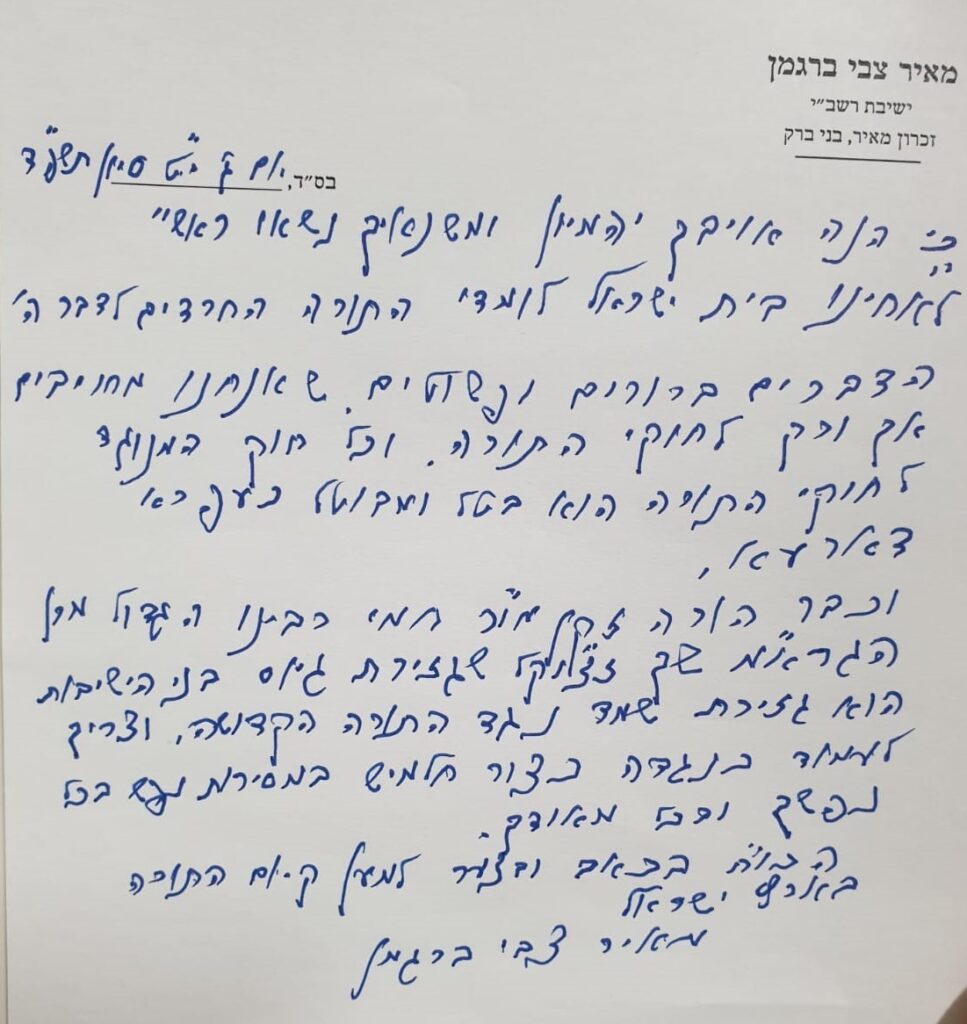 מאיר צבי ברגמן
ישיבת רשב"י
זכרון מאיר, בני ברק
בס"ד, יום ג' י"ט סיון תשפ"ד
כי הנה אויביך יהמיון ומשנאיך נשאו ראש"
לאחינו בית ישראל לומדי התורה החרדים לדבר ה'
הדברים ברורים ופשוטים. שאנחנו מחויבים
אך ורק לחוקי התורה. וכל חוק המנוגד
לחוקי התורה הוא בטל ומבוטל כעפרא
דארעא,
וכבר הורה זקן מו"ר חמי רבינו הגדול מרן
הגרא"מ שך זצוק"ל שגזירת גיוס בני הישיבות
הוא גזירת שמד נגד התורה הקדושה, וצריך
לעמוד כנגדה כצור חלמיש במסירות נפש בכל
נפשך ובכל מאודך.
הכו"ח בכאב ובצער למען קיום התורה
בארץ ישראל
מאיר צבי ברגמן